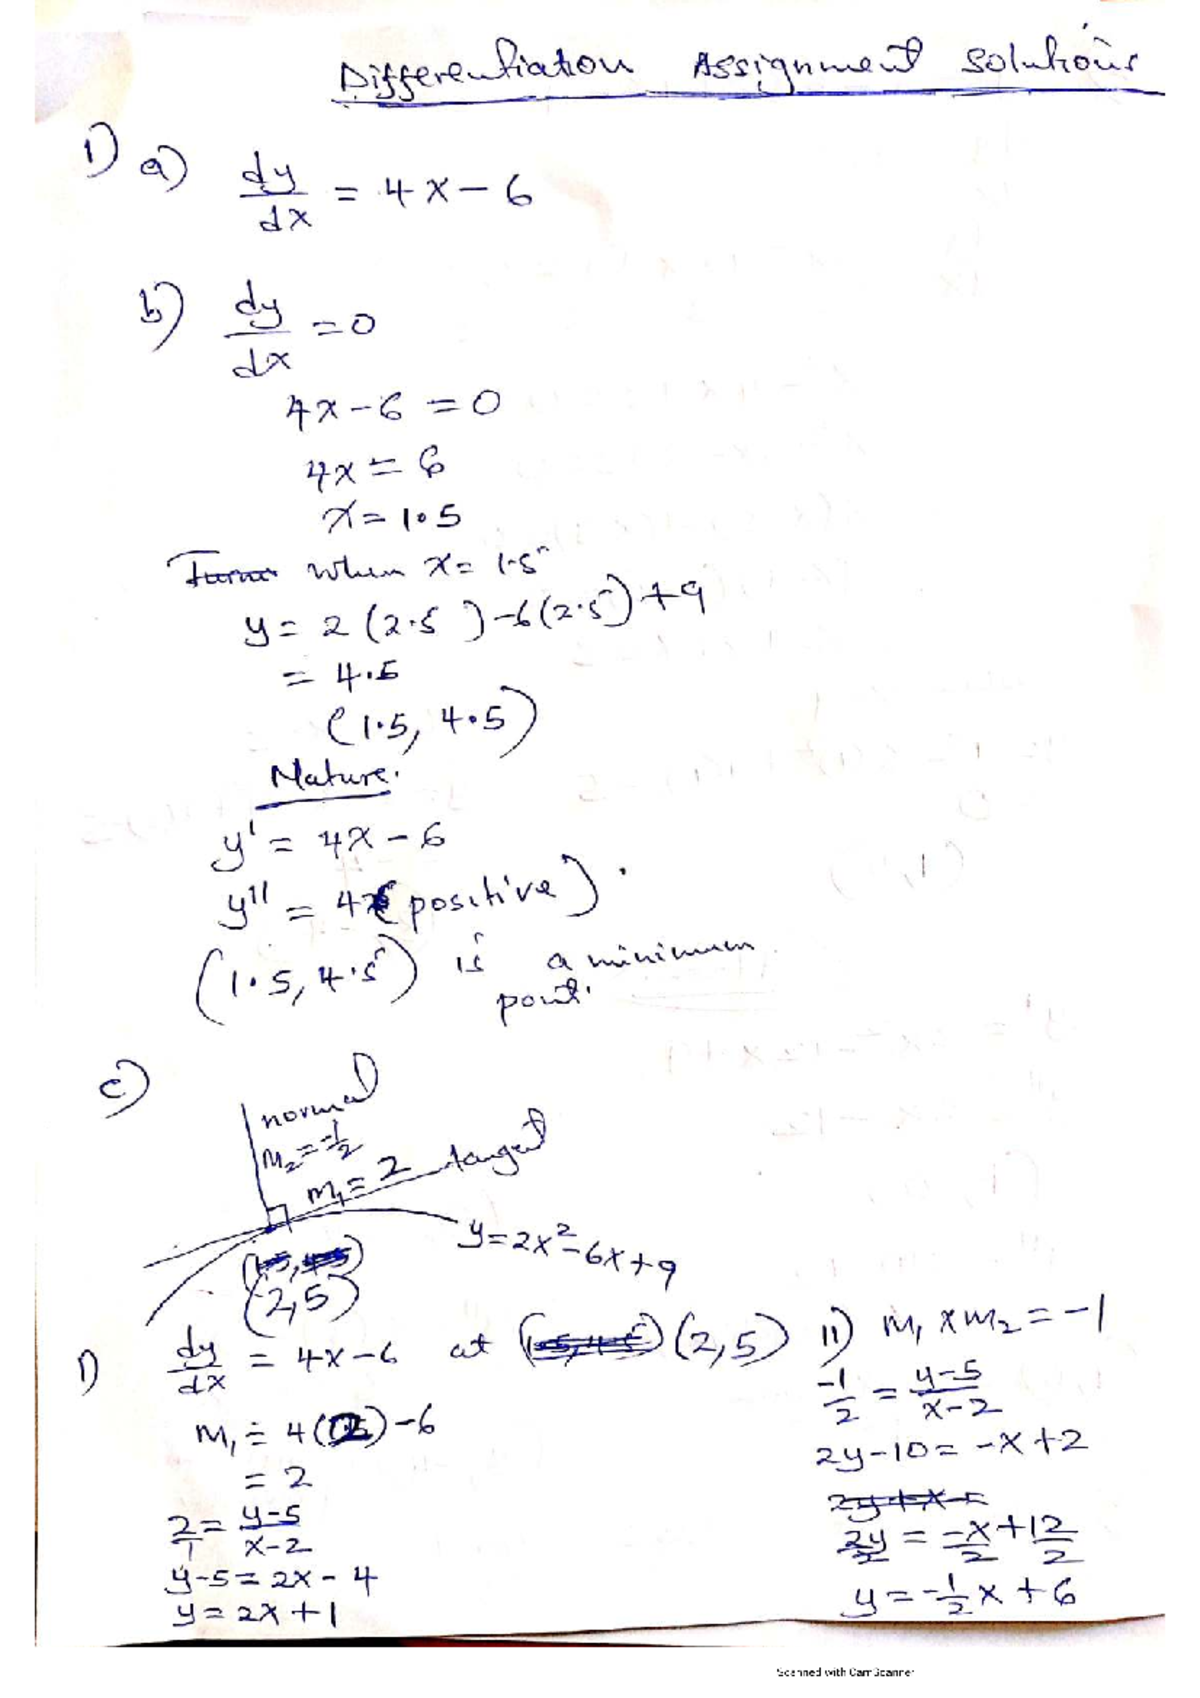 Differentiation Assignment Solutions
1) a) dy/dx = 4x - 6
b) dy/dx = 0
4x - 6 = 0
4x = 6
x = 1.5
when x = 1.5
y = 2(2.5 ) - 6(2.5) + 9
= 4.5
(1.5, 4.5)
Nature.
y' = 4x - 6
y'' = 4 (positive).
(1.5, 4.5) is a minimum
point.
c)
normal
m₂ = -1/2
m₁ = 2 tangent
y = 2x² - 6x + 9
(2,5)
1) dy/dx = 4x - 6 at (2,5)
m₁ = 4(2) - 6
= 2
2/1 = y-5/x-2
y - 5 = 2x - 4
y = 2x + 1
11) m₁ x m₂ = -1
-1/2 = y-5/x-2
2y - 10 = -x + 2
2y/2 = -x/2 + 12/2
y = -1/2 x + 6
Scanned with CamScanner